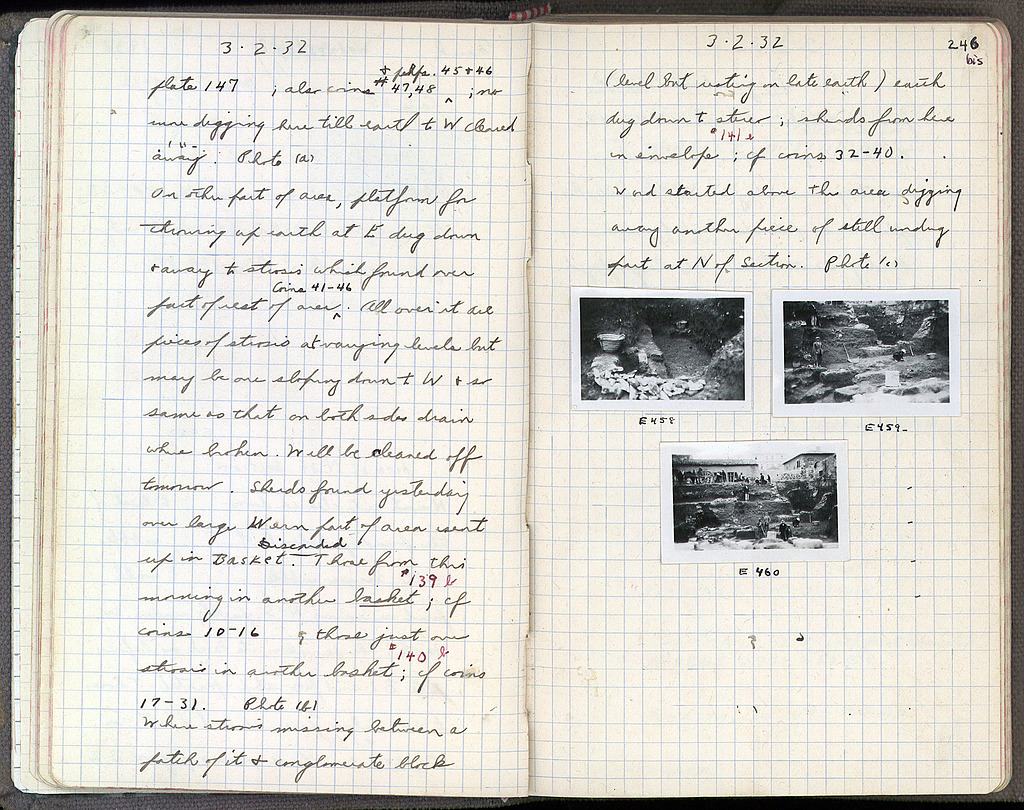 3·2·32
& perhps. 45 & 46
plate 147 ; also coins # 47, 48 ^ ; no
more digging here till earth to W cleared
away. Photo (a)
On other part of area, platform for
throwing up earth at E dug down
& away to strosis which found over
Coins 41-46
part of rest of area ^. All over it are
pieces of strosis at varying levels but
may be one sloping down to W & so
same as that on both sides drain
where broken. Will be cleaned off
tomorrow. Sherds found yesterday
over large Wern part of area went
Discarded
up in Basket. Those from this
#139 b
morning in another basket ; cf
coins 10-16 & those just over
#140 b
strosis in another basket ; cf coins
17-31. Photo (b)
Where strosis missing between a
patch of it & conglomerate block
3·2·32
246
bis
(level but resting on late earth) earth
dug down to stereo ; sherds from here
#141 e
in envelope ; cf coins 32-40.
Word started above the area digging
away another piece of still undug
part at N of Section. Photo (c)
E 458
E 459-
E 460